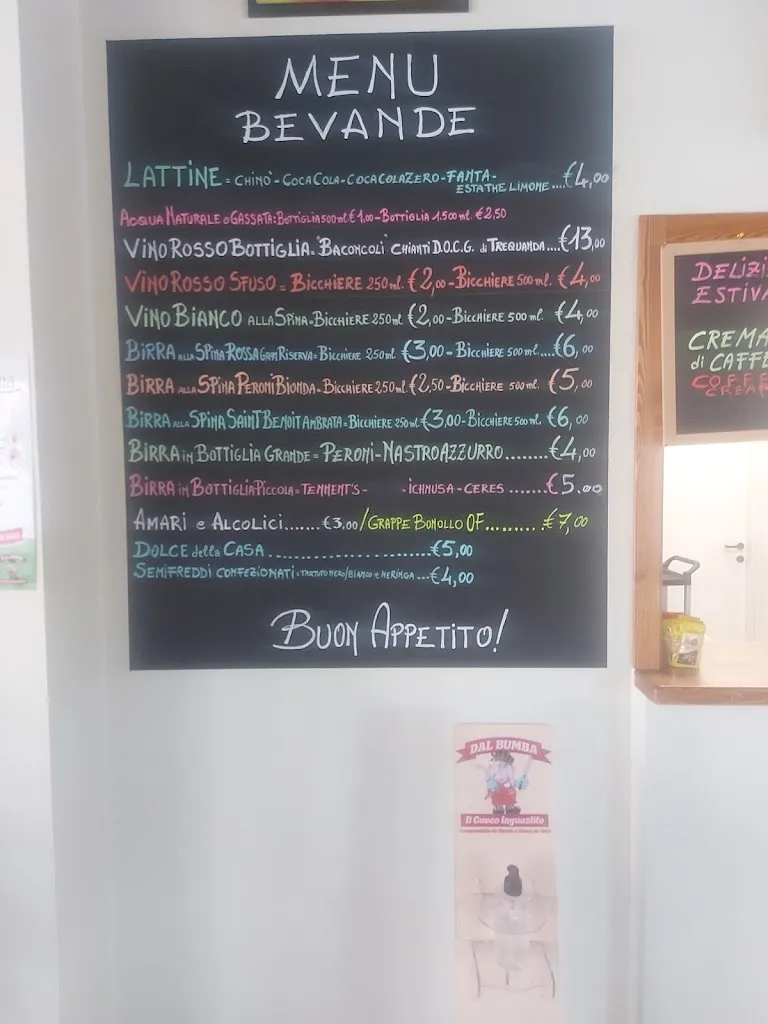 MENU
BEVANDE
LATTINE = CHINO' - COCA COLA - COCA COLA ZERO - FANTA -
ESTATHE LIMONE....€4,00
ACQUA NATURALE o GASSATA: BOTTIGLIA 500 ml €1,00 - BOTTIGLIA 1.500 ml. €2,50
VINO ROSSO BOTTIGLIA = "BACONCOLI" CHIANTI D.O.C.G. di TREQUANDA....€13,00
VINO ROSSO SFUSO = BICCHIERE 250 ml. €2,00 - BICCHIERE 500 ml. €4,00
VINO BIANCO ALLA SPINA = BICCHIERE 250 ml. €2,00 - BICCHIERE 500 ml. €4,00
BIRRA ALLA SPINA ROSSA GRAN RISERVA = BICCHIERE 250 ml €3,00 - BICCHIERE 500 ml....€6,00
BIRRA ALLA SPINA PERONI BIONDA = BICCHIERE 250 ml. €2,50 - BICCHIERE 500 ml. €5,00
BIRRA ALLA SPINA SAINT BENOIT AMBRATA = BICCHIERE 250 ml. €3,00 - BICCHIERE 500 ml. €6,00
BIRRA in BOTTIGLIA GRANDE = PERONI - NASTRO AZZURRO........€4,00
BIRRA in BOTTIGLIA PICCOLA = TENNENT'S - - ICHNUSA - CERES.......€5.00
AMARI e ALCOLICI.......€3.00 / GRAPPE BONOLLO OF.........€7,00
DOLCE della CASA..........................€5,00
SEMIFREDDI CONFEZIONATI = TARTUFO NERO/BIANCO e MERINGA...€4,00
BUON APPETITO!
DELIZI
ESTIVA
CREMA
di CAFFE
COFFE
CREAM
DAL BUMBA
Il Cuoco Inguastito